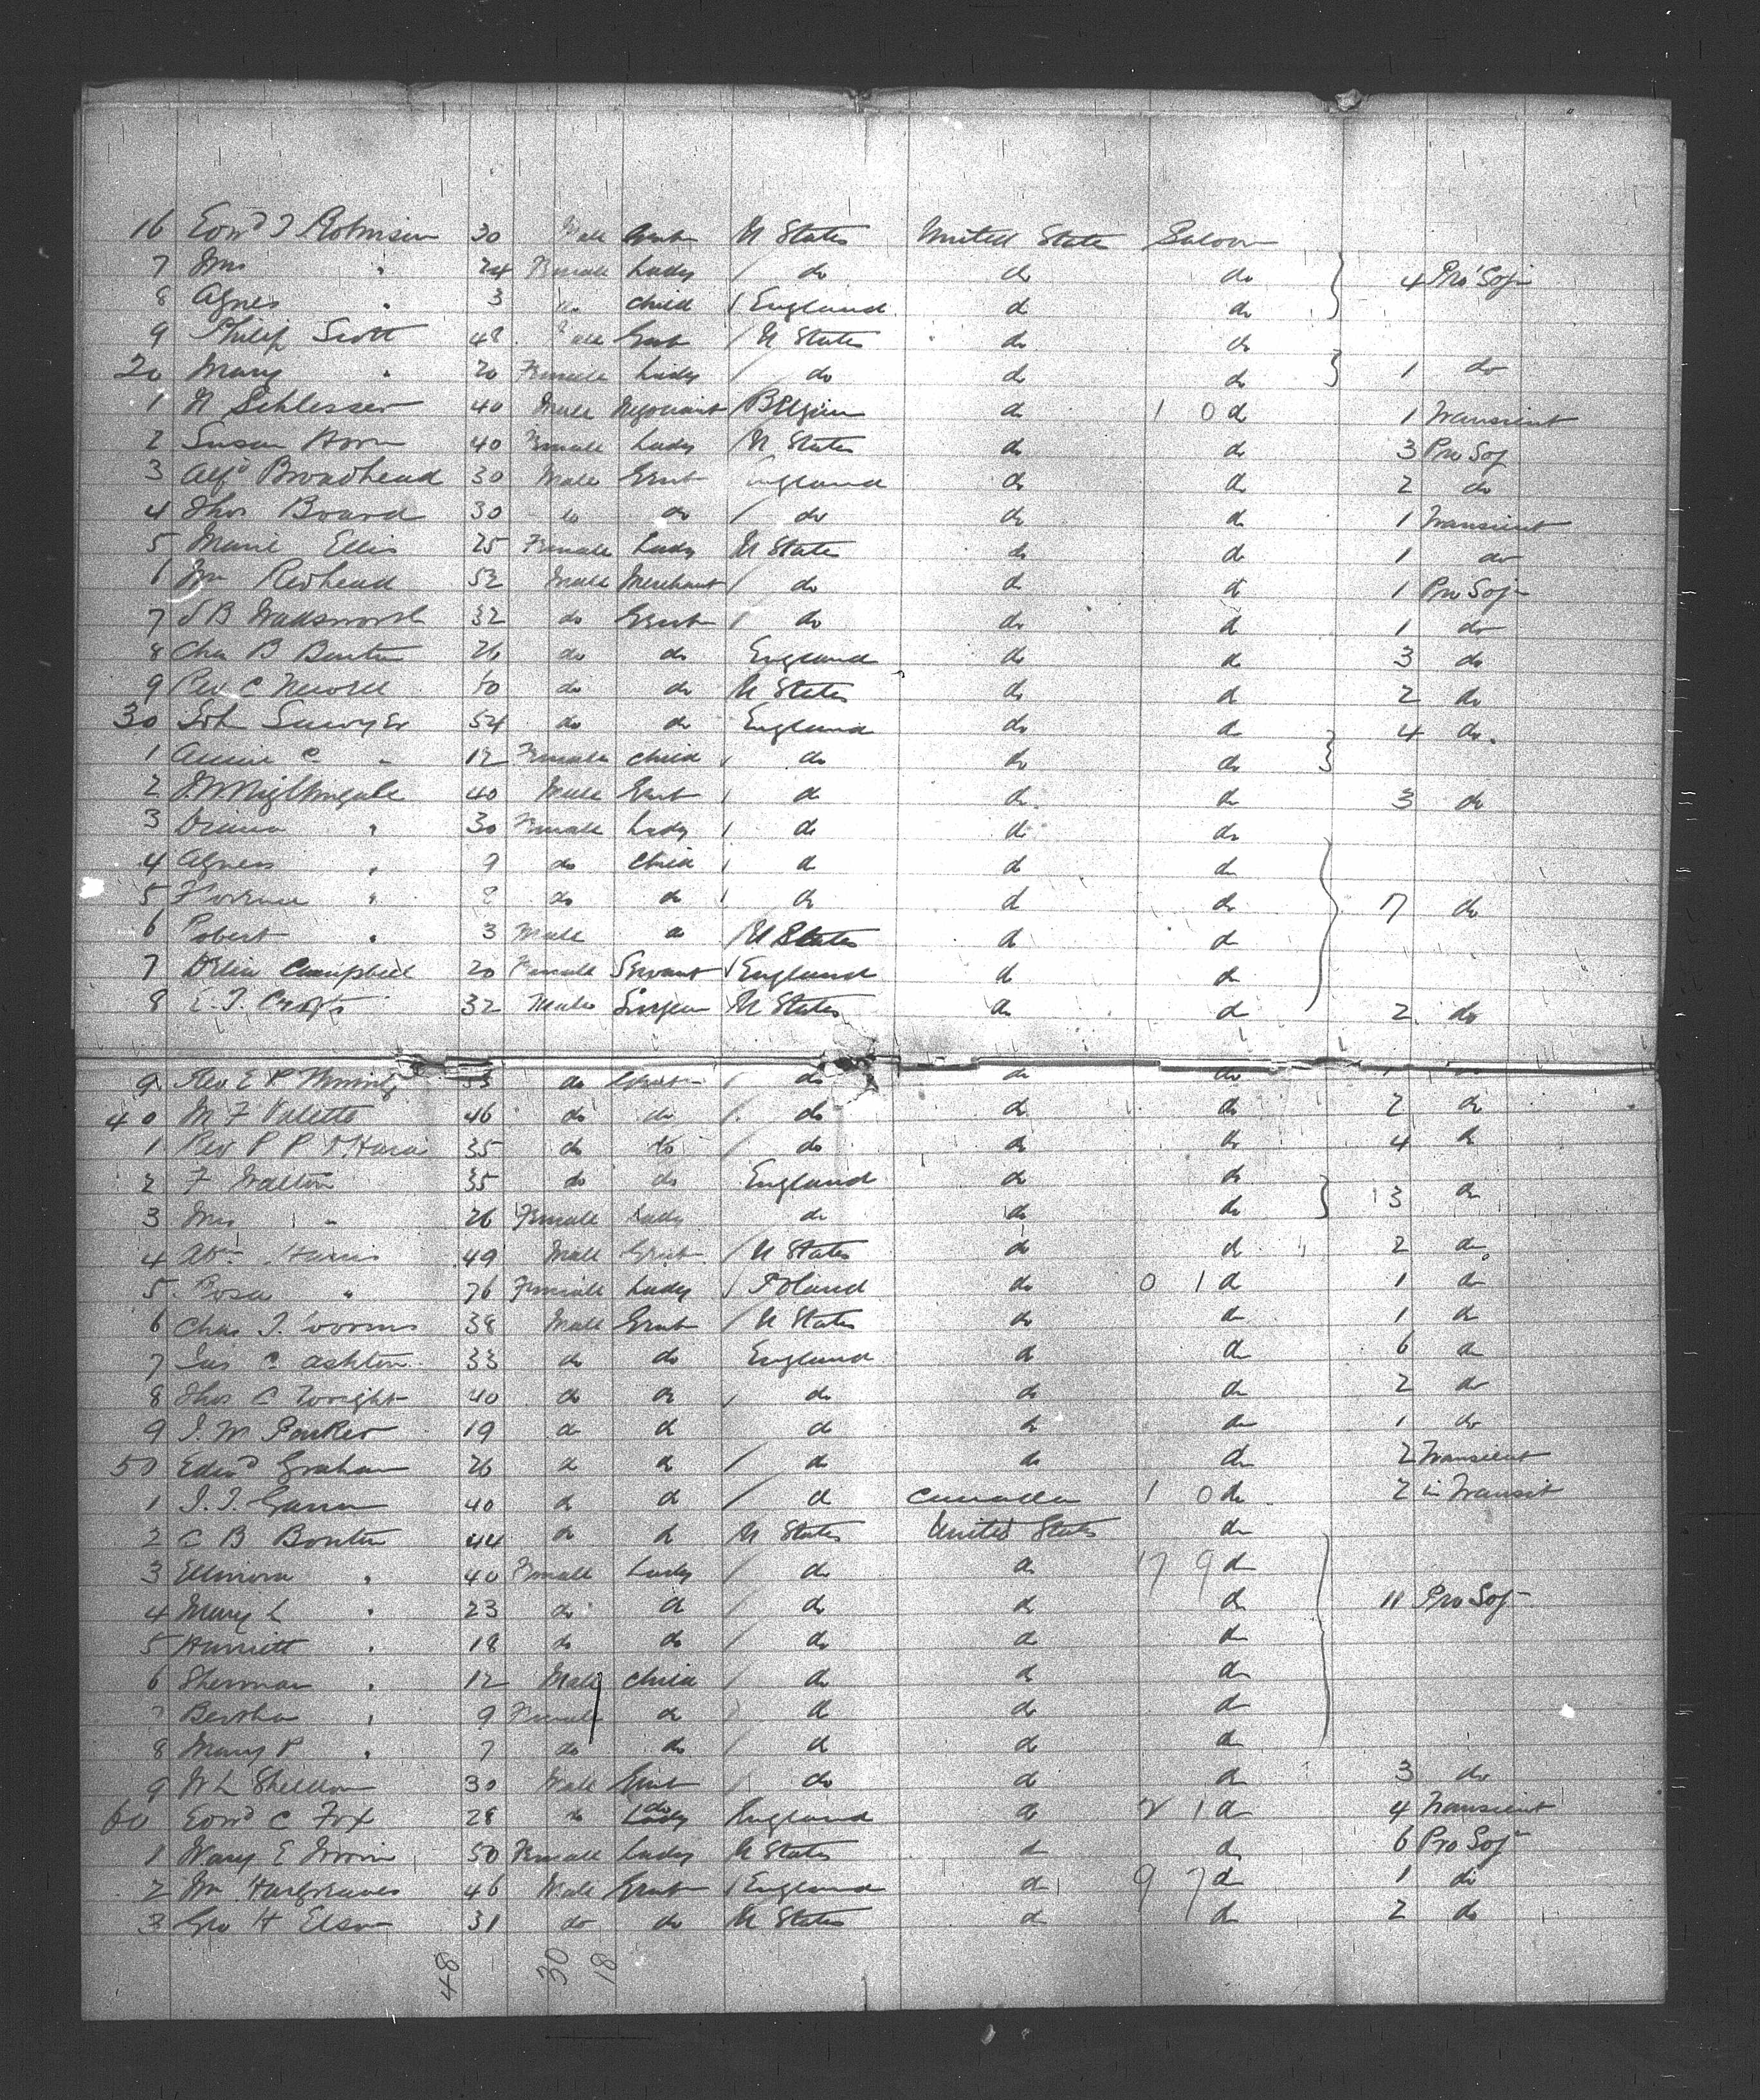 16 Edwd J Robinson 30 Male Gent U States United States Saloon
7 Mrs " 24 Female Lady / do do do 4 Pro Soj
8 Agnes " 3 do child / England do do
9 Philip Scott 48 Male Gent / U States do do
20 Mary " 20 Female Lady / do do do 1 do
1 N Schlesser 40 Male Negociant / Belgium do 1 0 do 1 Transient
2 Susan Horn 40 Female Lady / U States do do 3 Pro Soj
3 Alfd Broadhead 30 Male Gent England do do 2 do
4 Thos Board 30 do do / do do do 1 Transient
5 Marie Ellis 25 Female Lady U States do do 1 do
6 Wm Redhead 52 Male Merchant / do do do 1 Pro Soj
7 S B Wadsworth 32 do Gent / do do do 1 do
8 Chas B Barton 26 do do England do do 3 do
9 Rev C 50 do do U States do do 2 do
30 Sawyer 54 do do England do do 4 do
1 Annie C " 12 Female child / do do do
2 Nightingale 40 Male Gent / do do do 3 do
3 " 30 Female Lady / do do do
4 Agnes " 9 do child / do do do
5 Florence " do do / do do do 7 do
6 Robert " 3 Male do / U States do do
7 Delia Campbell 20 Female Servant / England do do
8 E. J. Crofts 32 Male Surgeon U States do do 2 do
9 Rev E P do Gent / do do do
40 M F Valette 46 do do / do do do 2 do
1 Rev P P O'Hara 35 do do / do do do 4 do
2 F Walton 35 do do England do do 3 do
3 Mrs " 26 Female Lady do do do
4 Harris 49 Male Gent / U States do do 2 do
5 Rosa " 76 Female Lady / Poland do 0 1 do 1 do
6 Chas J. 38 Male Gent / U States do do 1 do
7 Jas C Ashton 33 do do England do do 6 do
8 Thos C Wright 40 do do / do do do 2 do
9 J. W Parker 19 do do do do do 1 do
50 Edwd Graham 26 do do / do do do 2 Transient
1 J. J. 40 do do / do Canada 1 0 do 2 in Transit
2 C B Bouton 44 do do U States United States do
3 Ellinora " 40 Female Lady / do do 17 9 do
4 Mary L " 23 do do / do do do 11 Pro Soj
5 Harriett " 18 do do / do do do
6 Sherman " 12 Male child / do do do
7 Bertha " 9 Female do / do do do
8 Mary P " 7 do do / do do do
9 W L Sheldon 30 Male Gent / do do do 3 do
60 Edwd C Fox 28 do do England do 2 1 do 4 Transient
1 Mary E Irvin 50 Female Lady U States do do 6 Pro Soj
2 Wm Hargreaves 46 Male Gent / England do 9 7 do 1 do
3 Geo H Elson 31 do do U States do do 2 do
48 30 18